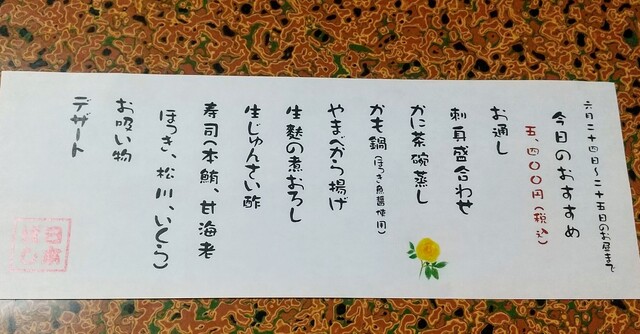 六月二十四日～二十五日のお昼まで
今日のおすすめ
五、四〇〇円（税込）
お通し
刺身盛合わせ
かに茶碗蒸し
かも鍋（ほっき魚醤使用）
やまべから揚げ
生麩の煮おろし
生じゅんさい酢
寿司（本鮪、甘海老
ほっき、松川、いくら）
お吸い物
デザート